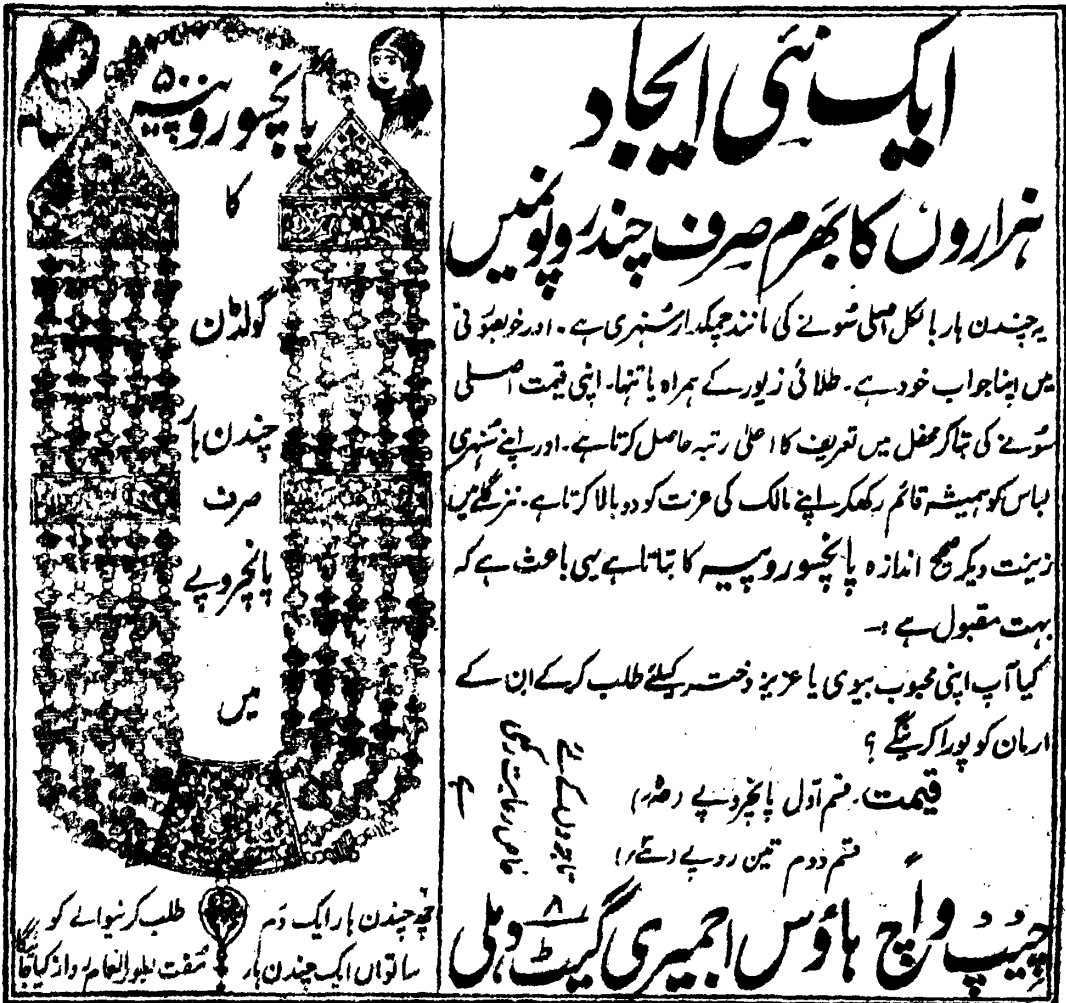 ایک نئی ایجاد
ہزاروں کا بھرم صرف چند روپونمیں
یہ چندن ہار بالکل اصلی سونے کی مانند چمکدار سنہری ہے۔ اور خوبصوتی
میں اپنا جواب خود ہے۔ طلائی زیور کے ہمراہ یا تنہا۔ اپنی قیمت اصلی
سونے کی بتا کر محفل میں تعریف کا اعلیٰ رتبہ حاصل کرتا ہے۔ اور اپنے سنہری
لباس کو ہمیشہ قائم رکھکر اپنے مالک کی عزت کو دوبالا کرتا ہے۔ نیز گلے میں
زینت دیکر صحیح اندازہ پانچسو روپیہ کا بتاتا ہے یہی باعث ہے کہ
بہت مقبول ہے :۔
کیا آپ اپنی محبوب بیوی یا عزیز دختر کیلئے طلب کر کے ان کے
ارمان کو پورا کرینگے ؟
قیمت۔ قسم اول پانچروپے
قسم دوم تین روپے
تاجروں کے لئے
خاص رعایت رکھی
ہے
چیپ واچ ہاؤس اجمیری گیٹ دہلی
۸
پانچسو روپیہ
۵۰۰
کا
گولڈن
چندن ہار
صرف
پانچروپے
میں
چھ چندن ہار ایک دم طلب کرنیوالے کو
ساتواں ایک چندن ہار مفت بطور انعام روانہ کیا جائیگا